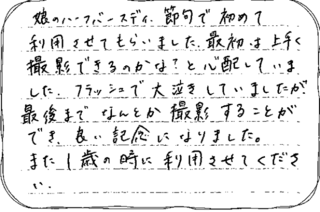 娘のハーフバースディ、節句で初めて
利用させてもらいました。最初は上手く
撮影できるのかな?と心配していま
した。フラッシュで大泣きしていましたが
最後までなんとか撮影することが
でき、良い記念になりました。
また1歳の時に利用させてくださ
い。